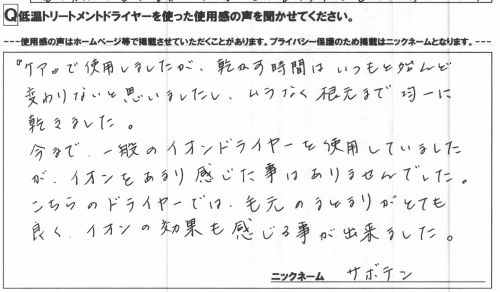 Q低温トリートメントドライヤーを使った使用感の声を聞かせてください。
---使用感の声はホームページ等で掲載させていただくことがあります。プライバシー保護のため掲載はニックネームとなります。---
『ケア』で使用しましたが、乾かす時間はいつもと殆んど
変わりないと思いましたし、ムラなく根元まで均一に
乾きました。
今まで、一般のイオンドライヤーを使用していました
が、イオンをあまり感じた事はありませんでした。
こちらのドライヤーでは、毛元のまとまりがとても
良く、イオンの効果も感じる事が出来ました。
ニックネーム サボテン